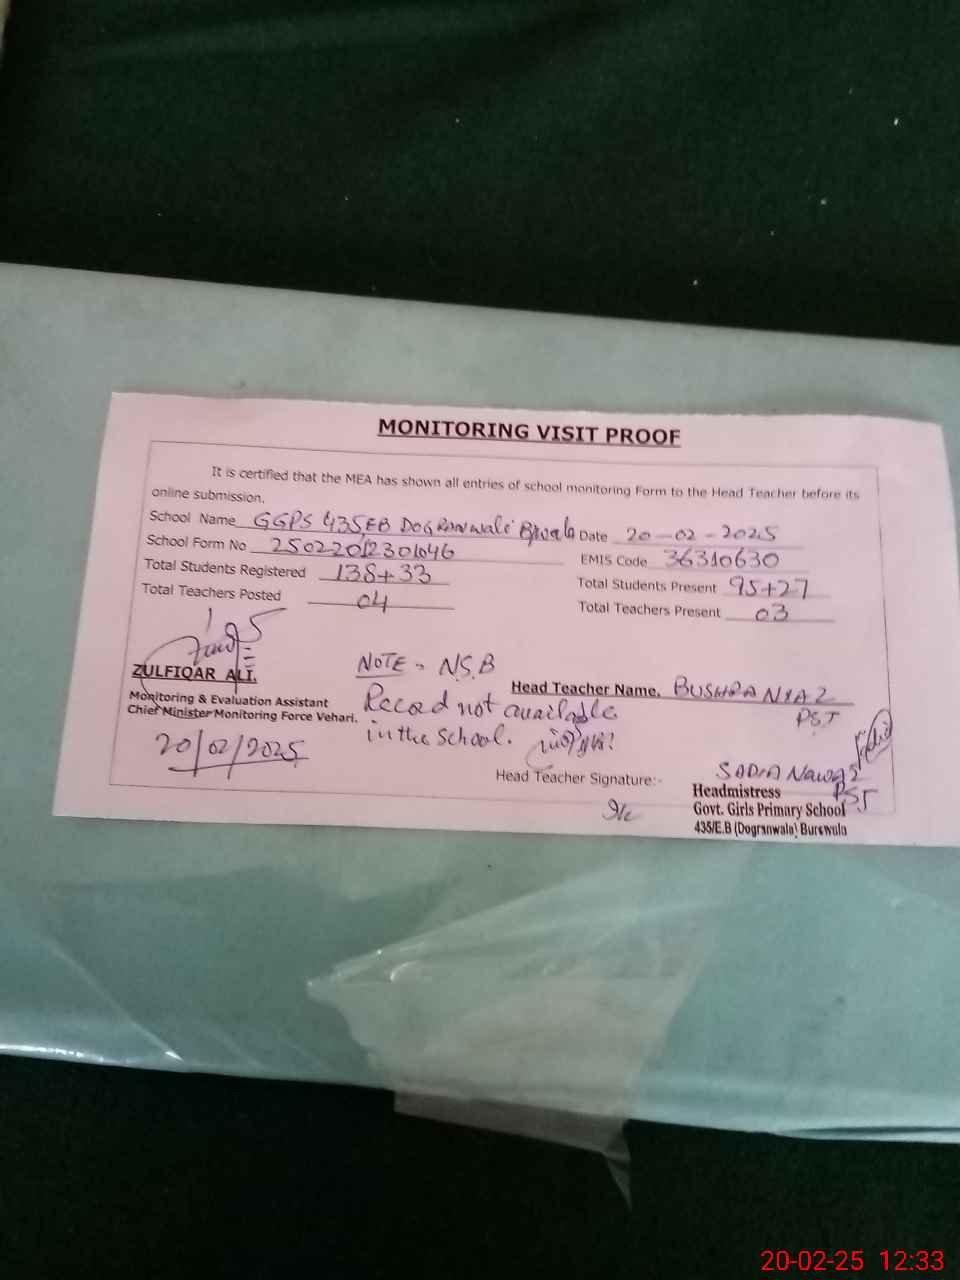 MONITORING VISIT PROOF
It is certified that the MEA has shown all entries of school monitoring Form to the Head Teacher before its
online submission.
School Name GGPS 435,EB DOGRANWALI Date 20-02-2025
School Form No EMIS Code 36310630
Total Students Registered 138+33 Total Students Present 95+27
Total Teachers Posted 04 Total Teachers Present 03
ZULFIQAR ALI.
Monitoring & Evaluation Assistant
Chief Minister Monitoring Force Vehari.
20/02/2025
NOTE - N.S.B
Record not available
in the school.
Head Teacher Name. BUSHRA NIAZ
PST
Head Teacher Signature:-
SADIA Nawaz
PST
Headmistress
Govt. Girls Primary School
435/E.B (Dogranwala) Burewala
20-02-25 12:33